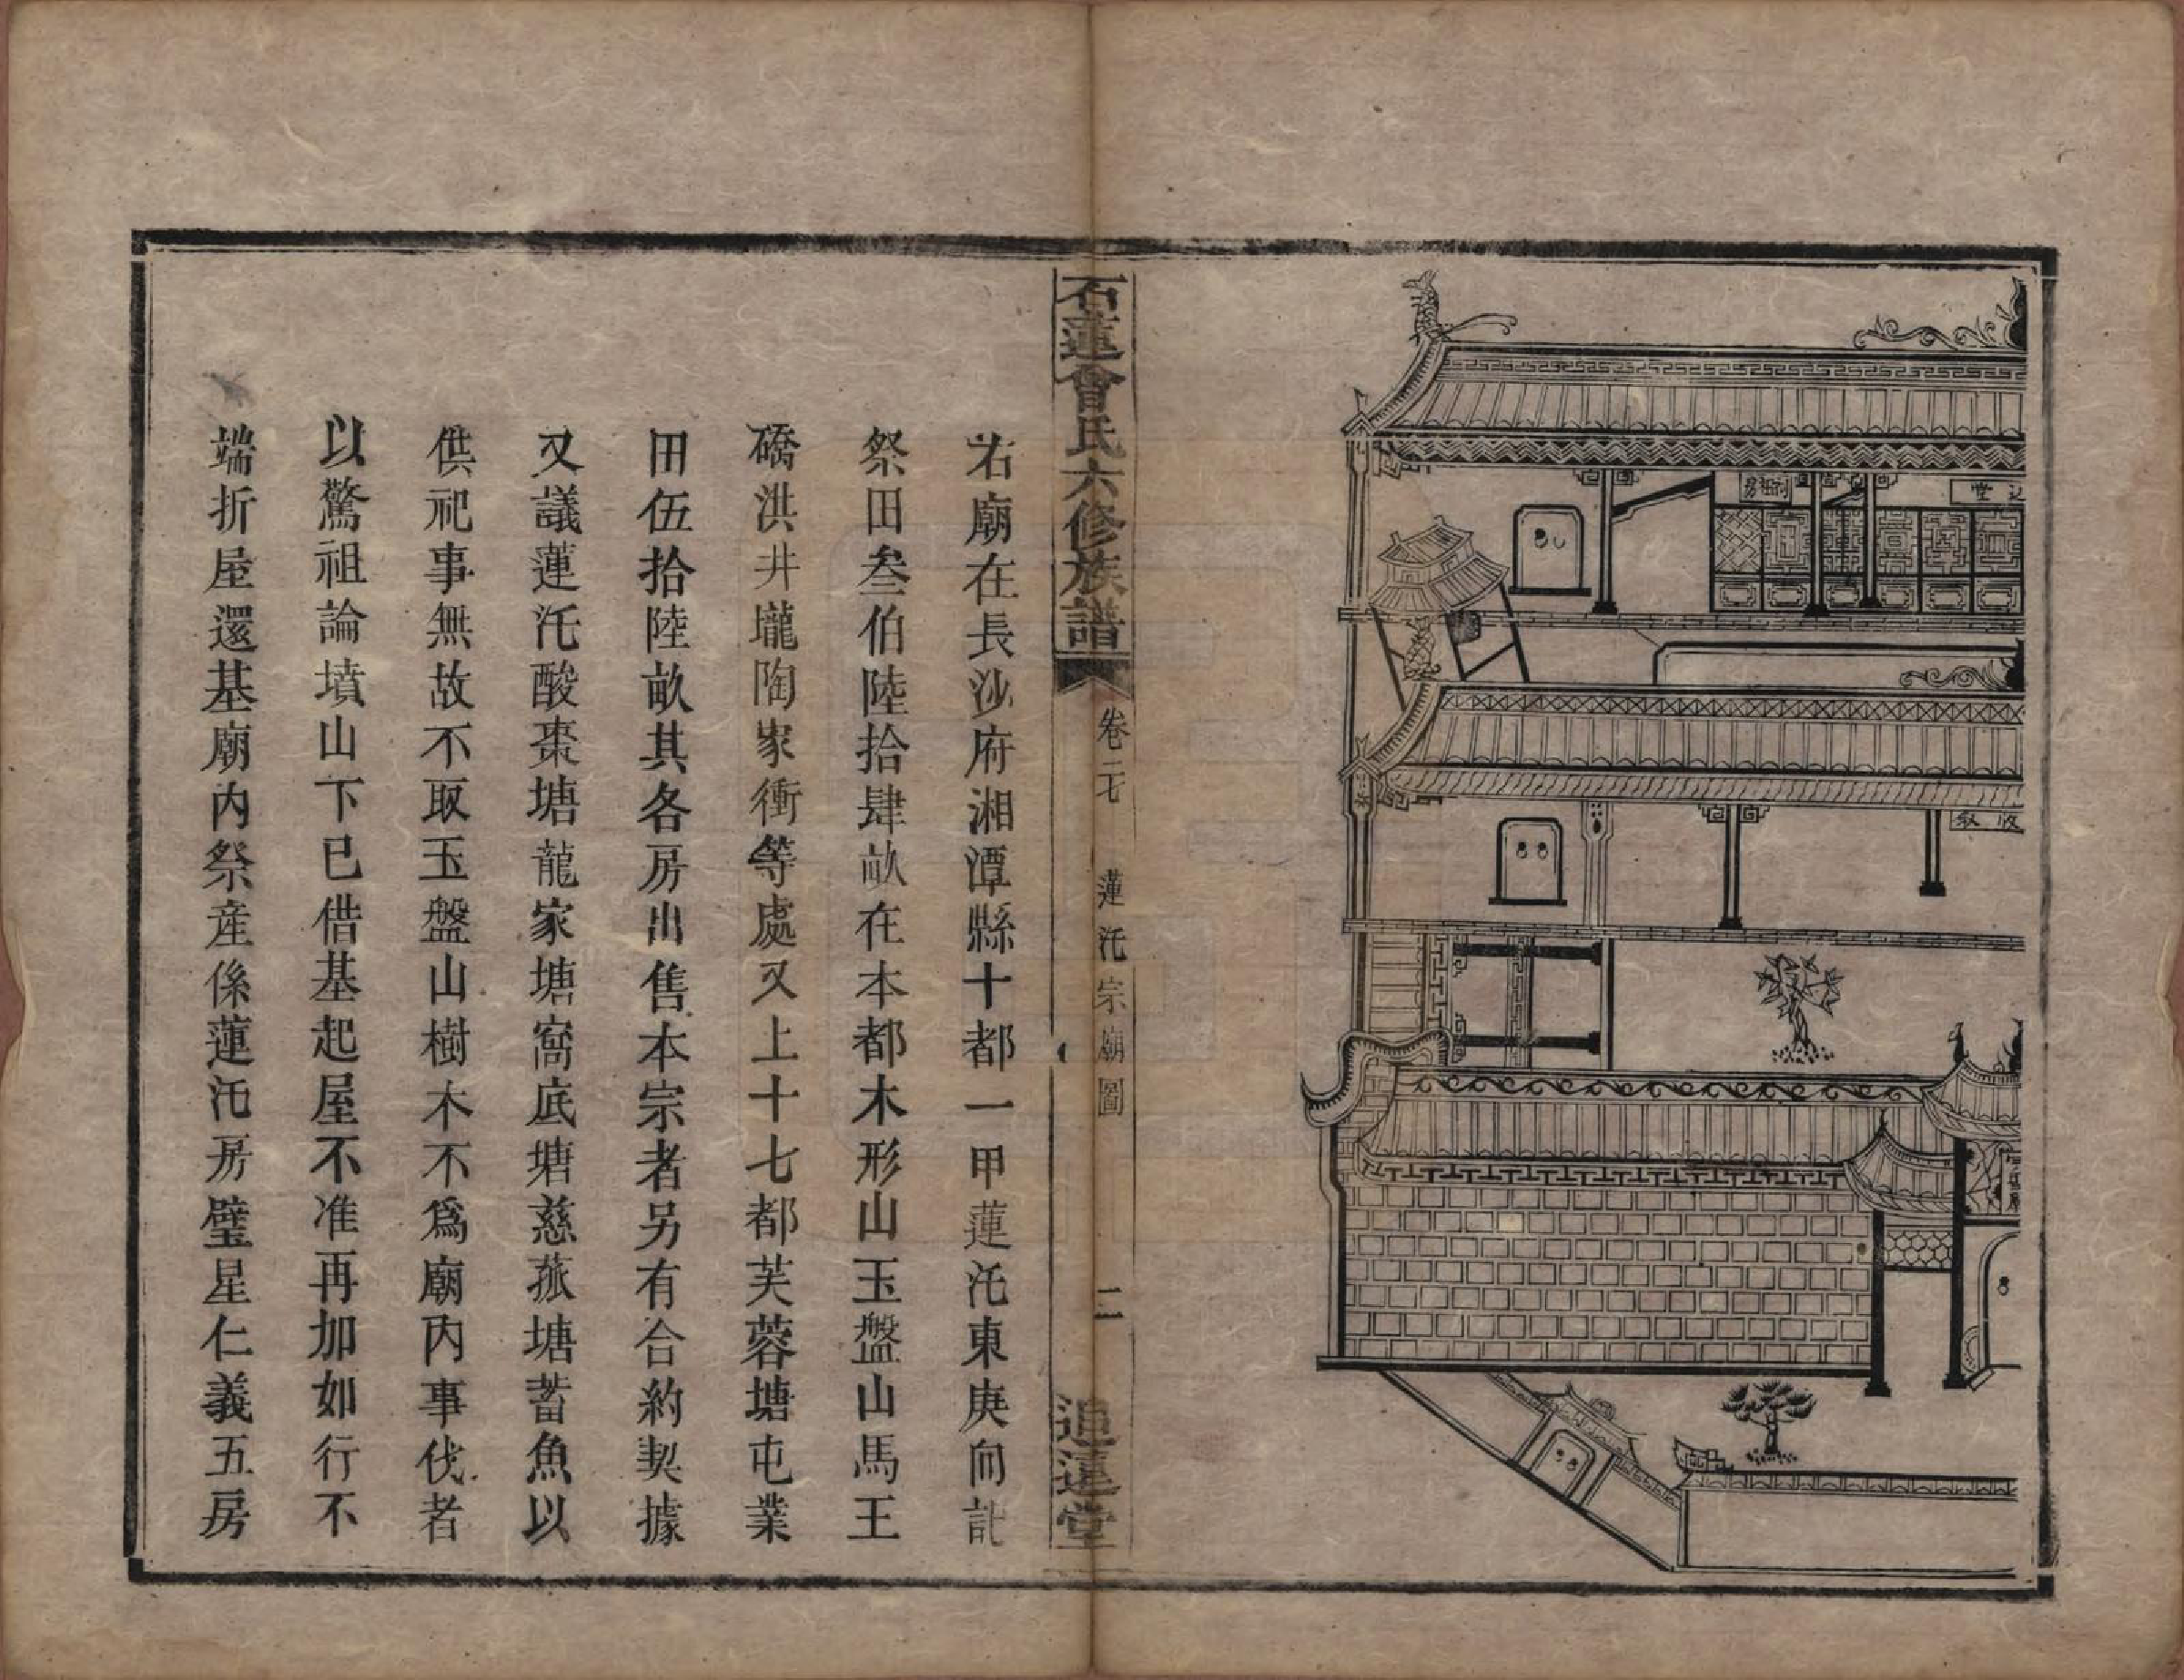 石蓮曾氏六修族譜
卷二七
蓮汑宗廟圖
二
追遠堂
右廟在長沙府湘潭縣十都一甲蓮汑東庚向訿
祭田叁伯陸拾肆畝在本都木形山玉盤山馬王
礄洪井壠陶家衝等處又上十七都芙蓉塘屯業
田伍拾陸畝其各房出售本宗者另有合約契據
又議蓮汑酸棗塘龍家塘窩底塘慈菰塘蓄魚以
供祀事無故不取玉盤山樹木不爲廟內事伐者
以驚祖論墳山下已借基起屋不准再加如行不
端折屋還基廟內祭產係蓮汑房璧星仁義五房